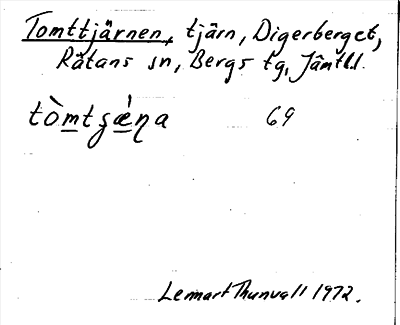 Tomttjärnen, tjärn, Digerberget,
Rätans sn, Bergs tg, Jämtl.l.
tòmtʂǽṇa 69
Lennart Thunvall 1972.